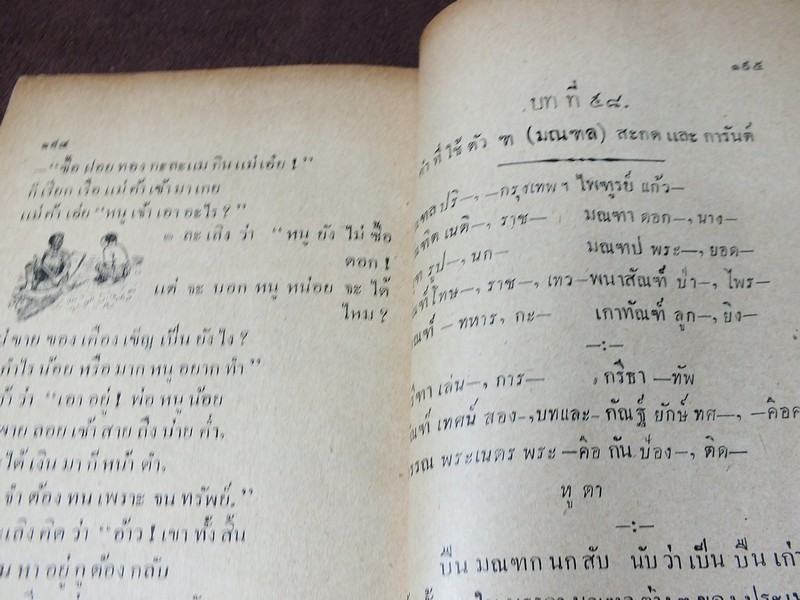 ๑๙๔
—“ซื้อ ฝอย ทอง กะละแม กิน แม่ เอ๋ย !”
ก็ เรียก เรือ แม่ ค้า เข้า มา เกย
แม่ ค้า เอ่ย “หนู เจ้า เอา อะไร ?”
๏ ละ เลิง ว่า “หนู ยัง ไม่ ซื้อ
ดอก !
แต่ จะ บอก หนู หน่อย จะ ได้
ไหม ?
ขาย ของ เคือง เข็ญ เป็น ยัง ไง ?
กำไร น้อย หรือ มาก หนู อยาก ทำ”
ว่า “เอา อยู่ ! พ่อ หนู น้อย
พาย ลอย เช้า สาย ถึง บ่าย ค่ำ,
ได้ เงิน มา ก็ หน้า ดำ,
จำ ต้อง ทน เพราะ จน ทรัพย์.”
ละเลิง คิด ว่า “อ้าว ! เขา ทั้ง สิ้น
หา อยู่ กู ต้อง กลับ
๑๙๕
บท ที่ ๕๘.
คำ ที่ ใช้ ตัว ฑ (มณฑล) สะกด และ การันต์
มณฑล ปริ—, —กรุงเทพ ฯ ไพฑูรย์ แก้ว—
บัณฑิต เนติ—, ราช— มณฑา ดอก—, นาง—
รูป—, นก— มณฑป พระ—, ยอด—
ทัณฑ์ โทษ—, ราช—, เทว— พนาสัณฑ์ ป่า—, ไพร—
— ทหาร, กะ— เกาทัณฑ์ ลูก—, ยิง—
—:—
กรีฑา เล่น—, การ— กรีธา —ทัพ
เทศน์ สอง—, บทและ— กัณฐ์ ยักษ์ ทศ—, —คือค
พระเนตร พระ —คือ กัน ป่อง—, ติด—
หู ตา
—:—
ปืน มณฑก นก สับ นับ ว่า เป็น ปืน เก่า